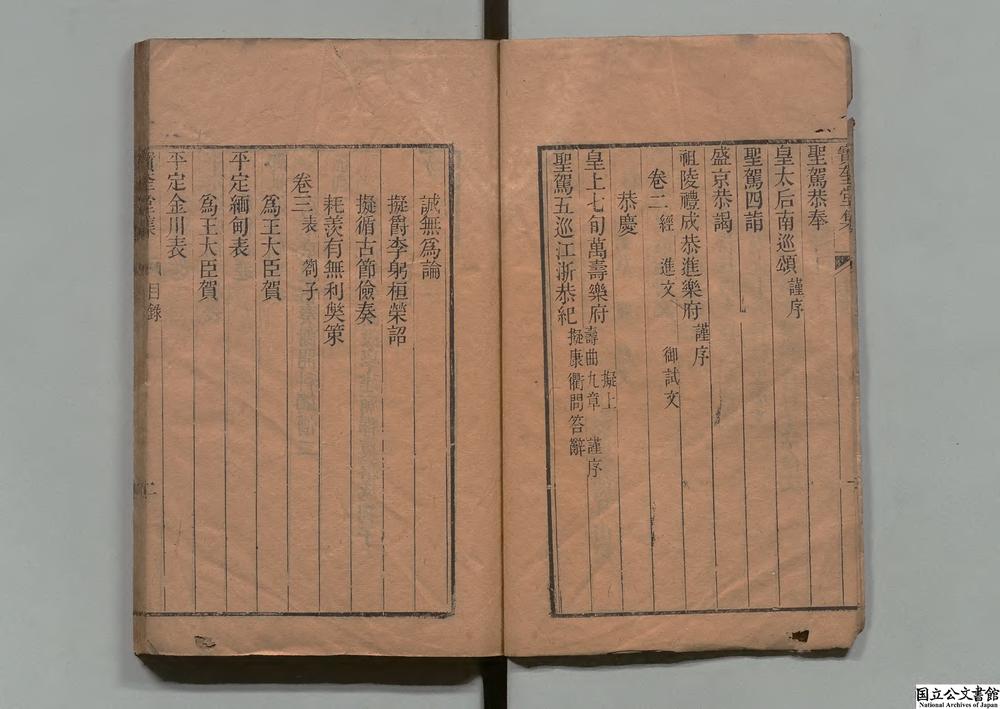 寶奎堂集
聖駕恭奉
皇太后南巡頌 謹序
聖駕四詣
盛京恭謁
祖陵禮成恭進樂府 謹序
卷二 經進文 御試文
恭慶
皇上七旬萬壽樂府 擬上壽曲九章 謹序
聖駕五巡江浙恭紀 擬康衢問答辭
誠無為論
擬爵李躬桓榮詔
擬循古節儉奏
耗羨有無利獘策
卷三 表 劄子
為王大臣賀
平定緬甸表
為王大臣賀
平定金川表
寶奎堂集 目錄 二
国立公文書館
National Archives of Japan